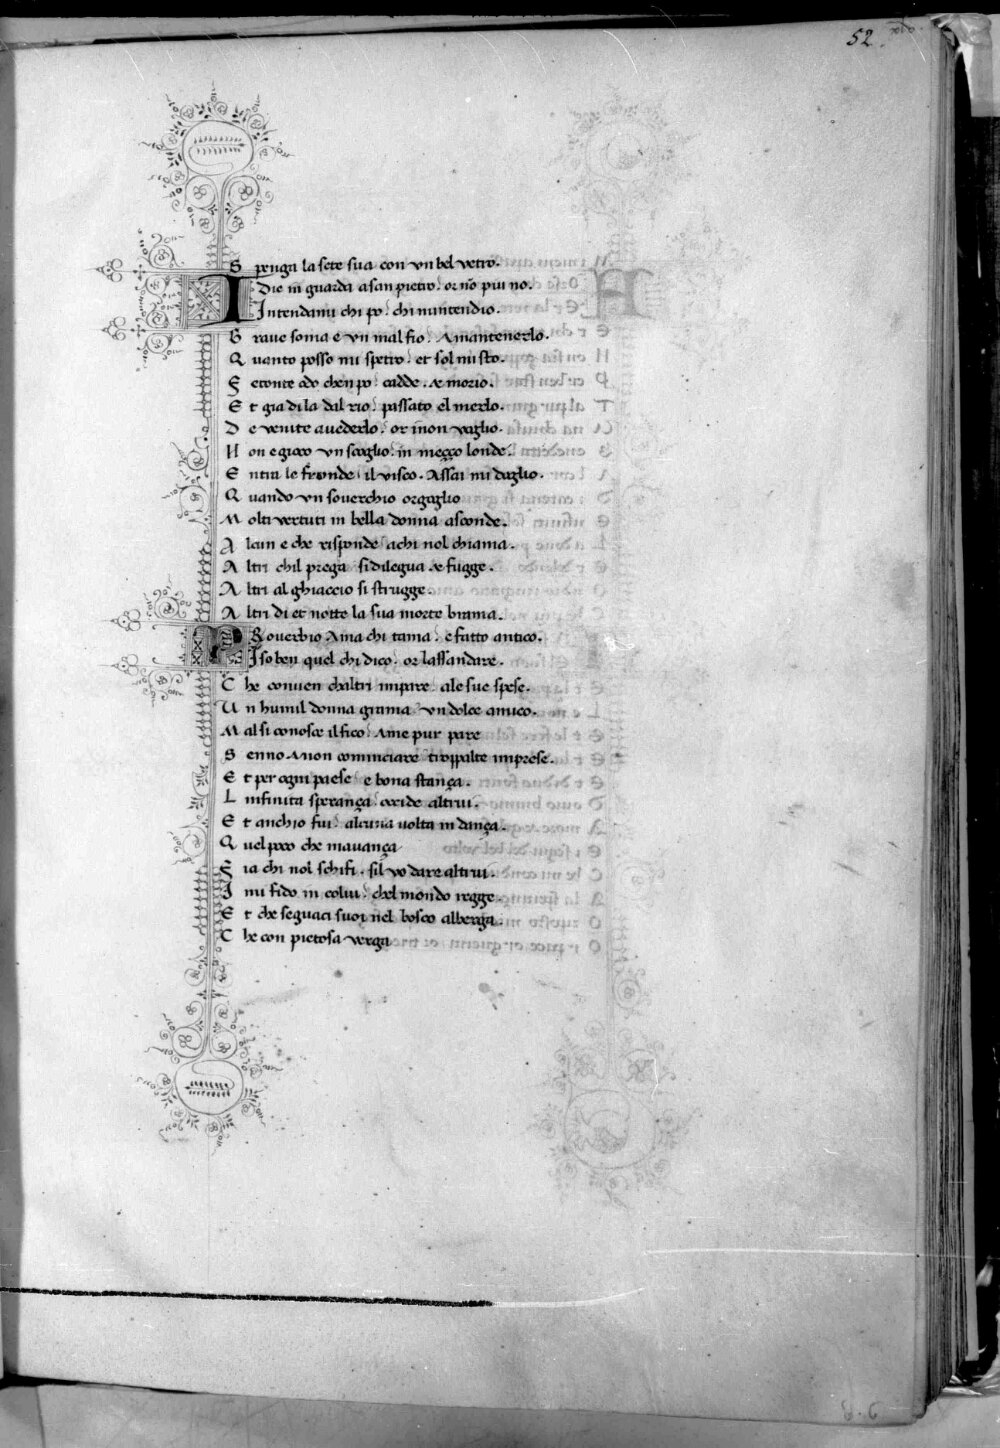 52
S penga la sete sua con vn bel vetro.
I Die in guarda asan pietro. or no piu no.
Intendami chi po. chi mintendio.
G raue soma e vn mal fio. Amantenerlo.
Q uanto posso mi spetro. et sol misto.
F etonte odo chen po. cadde. & morio.
E t gia dila dal rio. passato el merlo.
D e venite auederlo. or inon voglio.
N on e gioco vn scoglio. in meçço londe.
E ntra le fronde. il visco. Assai mi doglio.
Q uando vn souerchio orgoglio
M olti vertuti in bella donna asconde.
A lcun e che risponde achi nol chiama.
A ltri chil prega si dilegua & fugge.
A ltri al ghiaccio si strugge.
A ltri di et notte la sua morte brama.
P Rouerbio Ama chi tama. e fatto antico.
I so ben quel chi dico. or lassandare.
C he conuen chaltri impare. ale sue spese.
U n humil donna grama vn dolce amico.
M al si conosce il fico. Ame pur pare
S enno Anon cominciare troppalte imprese.
E t per ogni paese e bona stança.
L infinita sperança. occide altrui.
E t anchio fui. alcuna uolta in dança.
Q uel poco che mauança
F ia chi nol schifi. sil vo dare altrui.
I mi fido in colui. chel mondo regge.
E t che seguaci suoi nel bosco alberga.
C he con pietosa verga